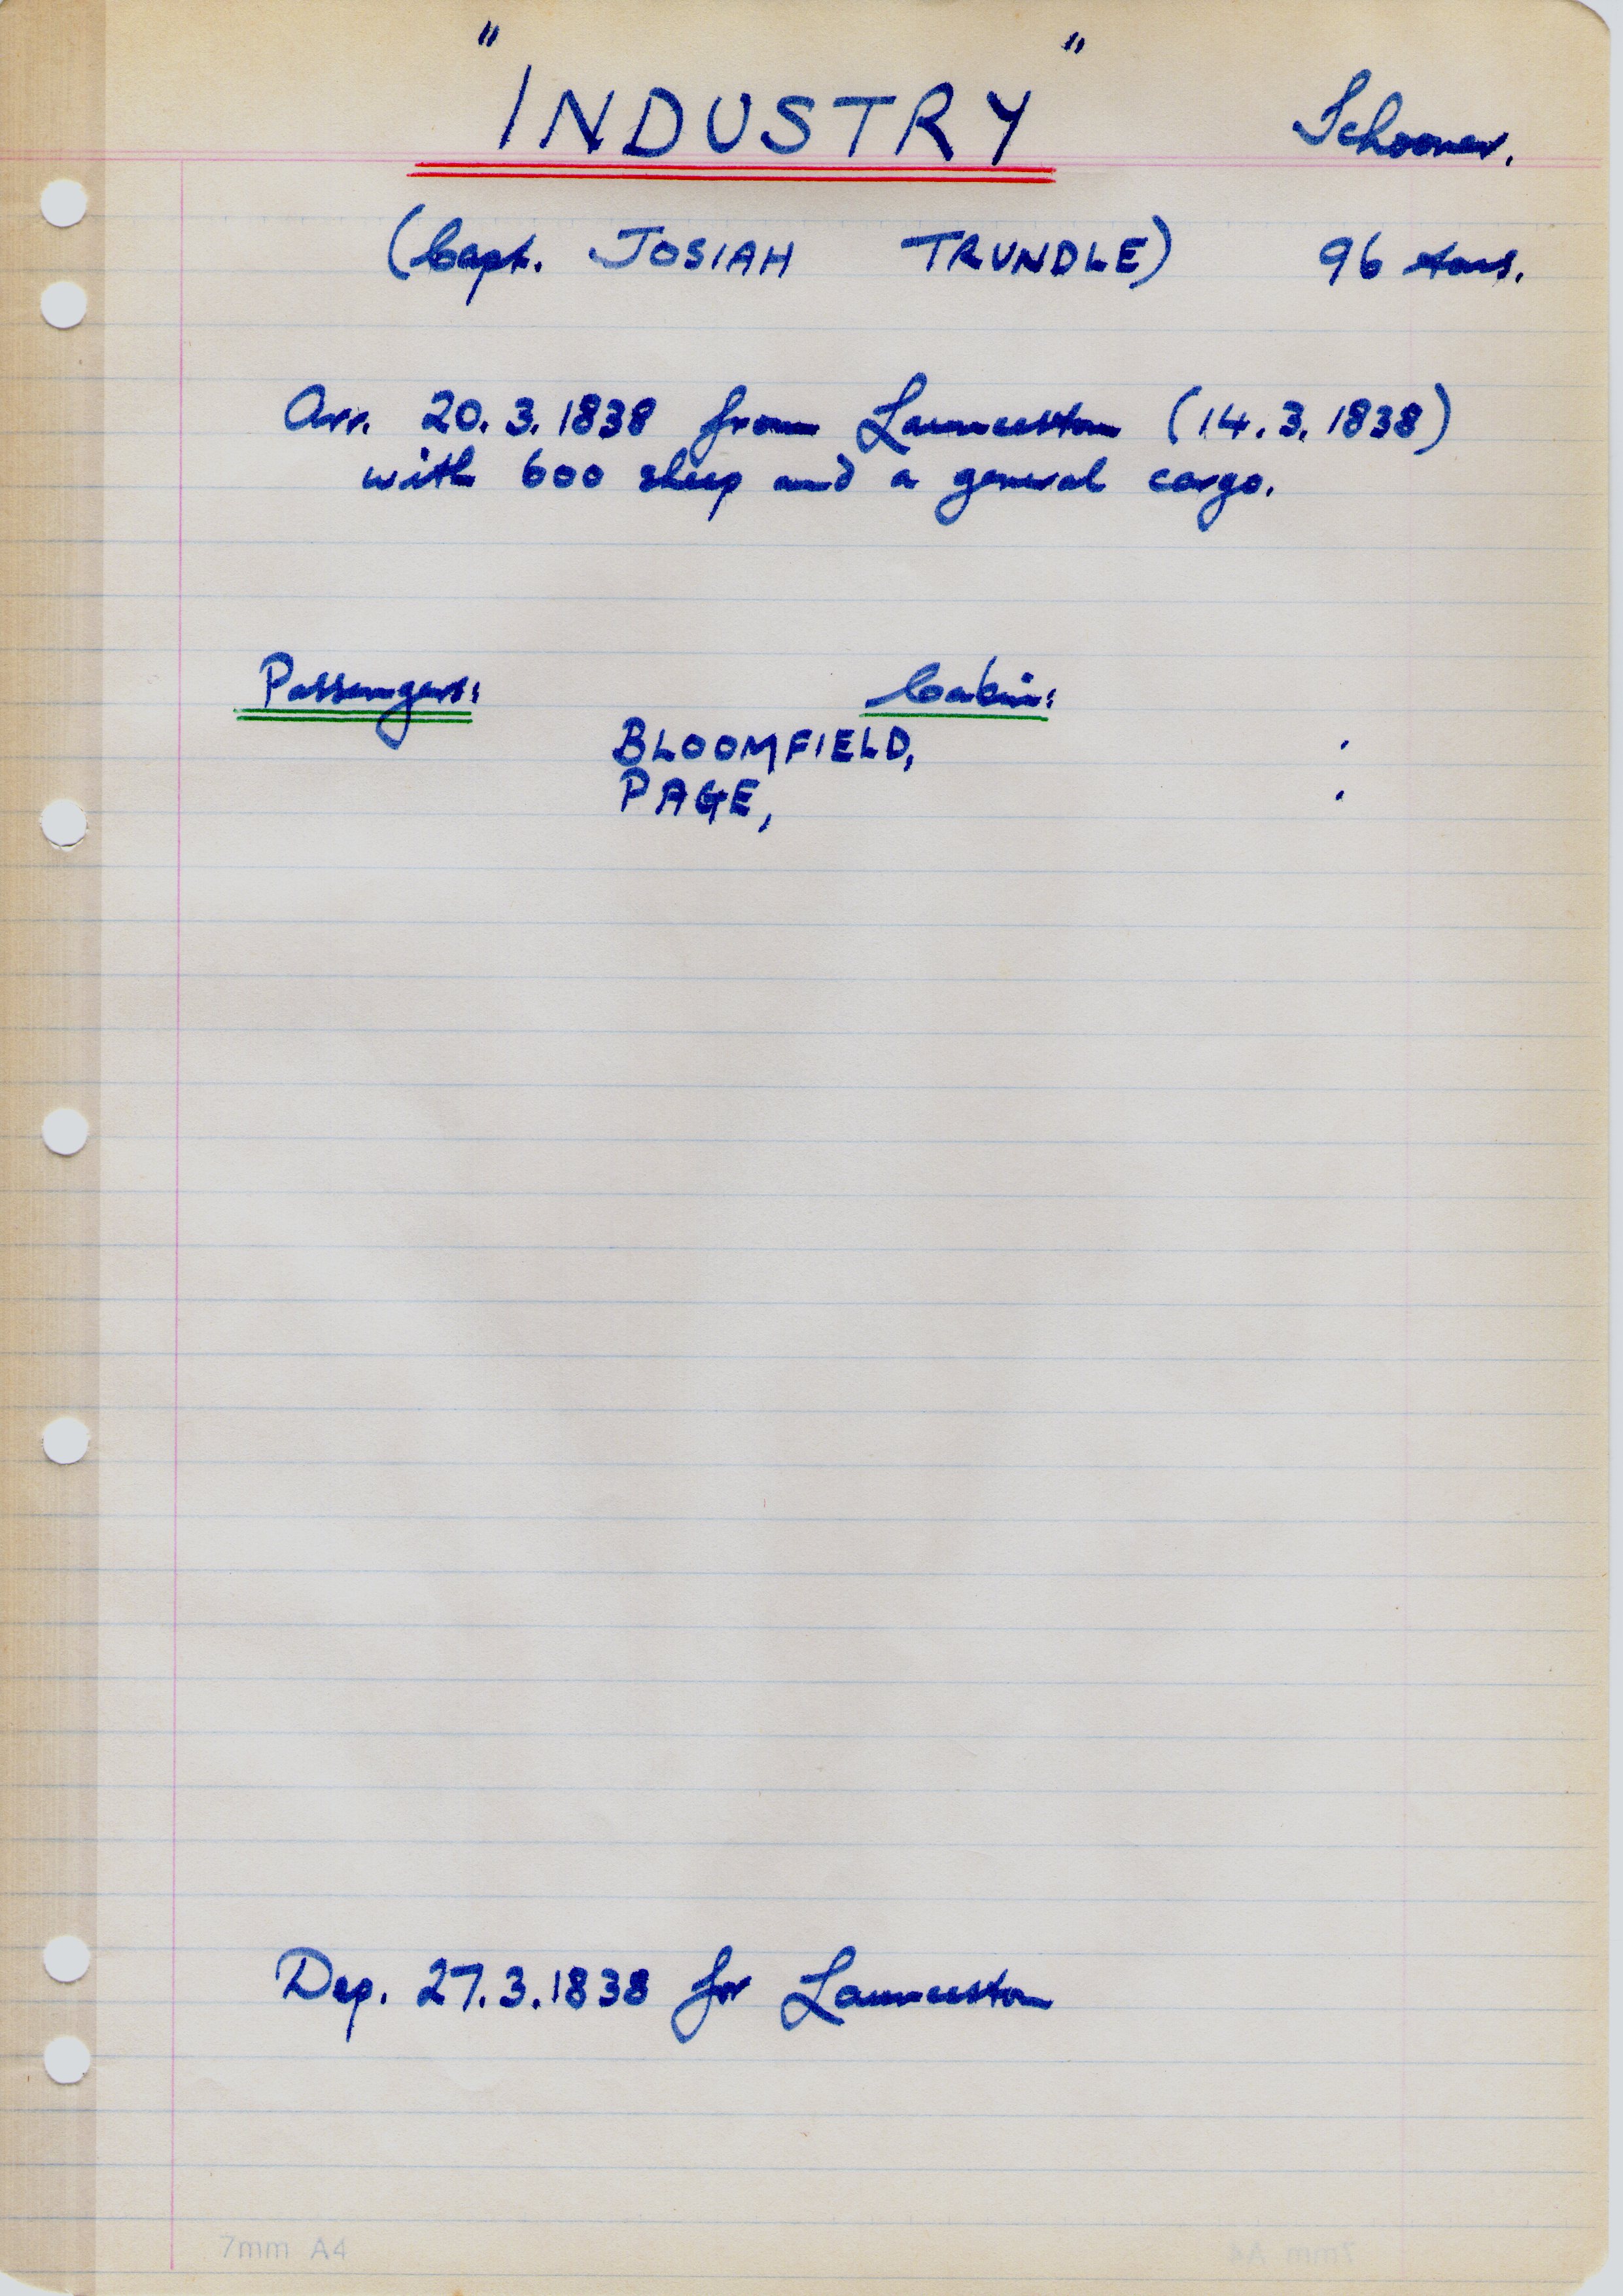 "INDUSTRY" Schooner.
(Capt. JOSIAH TRUNDLE) 96 tons.
Arr. 20.3.1838 from Launceston (14.3.1838)
with 600 sheep and a general cargo.
Passengers: Cabin:
BLOOMFIELD, .
PAGE, .
Dep. 27.3.1838 for Launceston
7mm A4